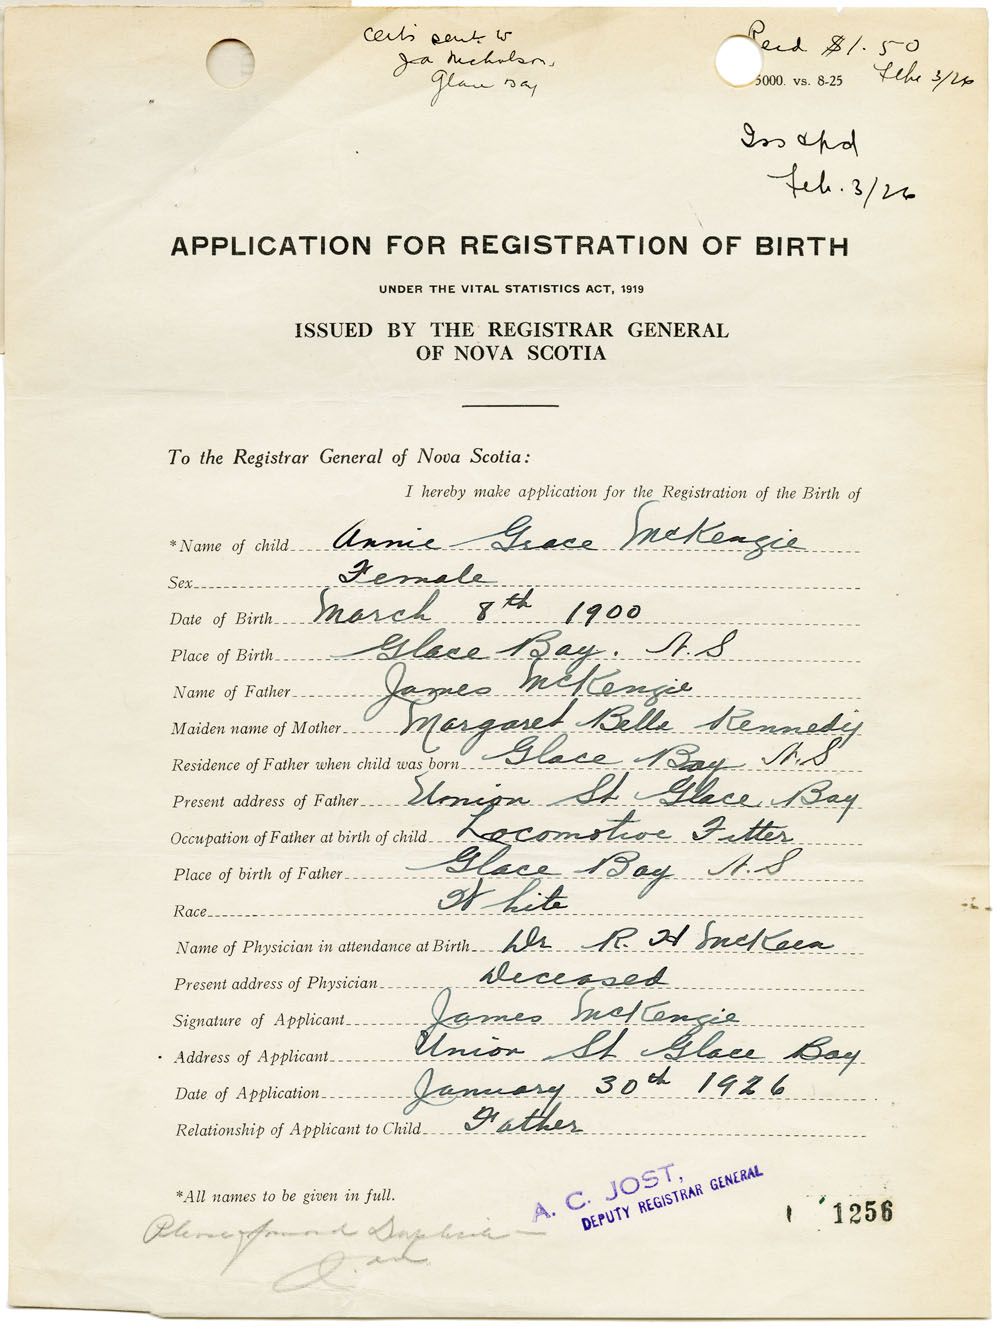 Certs sent to
Glace Bay
Recd. $1.50
Feb 3/26
5000. vs. 8-25
Iss & pd
Feb. 3/26
APPLICATION FOR REGISTRATION OF BIRTH
UNDER THE VITAL STATISTICS ACT, 1919
ISSUED BY THE REGISTRAR GENERAL
OF NOVA SCOTIA
To the Registrar General of Nova Scotia:
I hereby make application for the Registration of the Birth of
*Name of child Annie Grace McKenzie
Sex Female
Date of Birth March 8th 1900
Place of Birth Glace Bay. N.S
Name of Father James McKenzie
Maiden name of Mother Margaret Belle Kennedy
Residence of Father when child was born Glace Bay N.S
Present address of Father Union St Glace Bay
Occupation of Father at birth of child Locomotive Fitter
Place of birth of Father Glace Bay N.S
Race White
Name of Physician in attendance at Birth Dr R. H McKeen
Present address of Physician Deceased
Signature of Applicant James McKenzie
Address of Applicant Union St Glace Bay
Date of Application January 30th 1926
Relationship of Applicant to Child Father
*All names to be given in full.
A. C. JOST,
DEPUTY REGISTRAR GENERAL
1256
Please